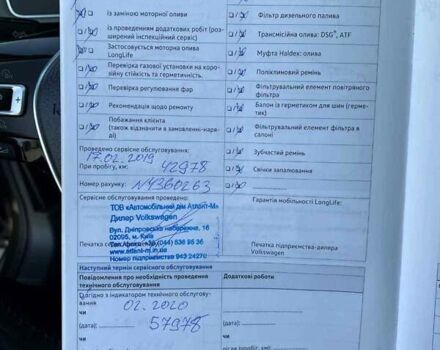 із заміною моторної оливи
із проведенням додаткових робіт (роз-
ширений інспекційний сервіс)
Застосовується моторна олива
LongLife
Перевірка газової установки на коро-
зійну стійкість та герметичність.
Перевірка регулювання фар
Рекомендація щодо ремонту
Побажання клієнта
(також відзначити в замовленні-наря-
ді)
Фільтр дизельного палива
Трансмісійна олива: DSG®, ATF
Муфта Haldex: олива
Поліклиновий ремінь
Фільтрувальний елемент повітряного
фільтра
Балон із герметиком для шин (герме-
тик)
Фільтрувальний елемент фільтра в
салоні
Зубчастий ремінь
Свічки запалювання
Проведено сервісне обслуговування:
17.02.2019
При пробігу, км: 42978
Номер рахунку: N4360263
Сервісне обслуговування проведено:
ТОВ «Автомобільний дім Атлант-М»
Дилер Volkswagen
Вул. Дніпровська набережна, 16
02095, м. Київ
(044) 538 95 36
www.atlant-m.in.ua
Номер підприємства 943 24270
Гарантія мобільності LongLife:
Печатка підприємства-дилера
Volkswagen
Наступний термін сервісного обслуговування
Повідомлення про необхідність проведення
технічного обслуговування
Додаткові роботи
Згідно з індикатором технічного обслугову-
вання 02.2020
чи
(дата): 57978
чи
чи
(дата):